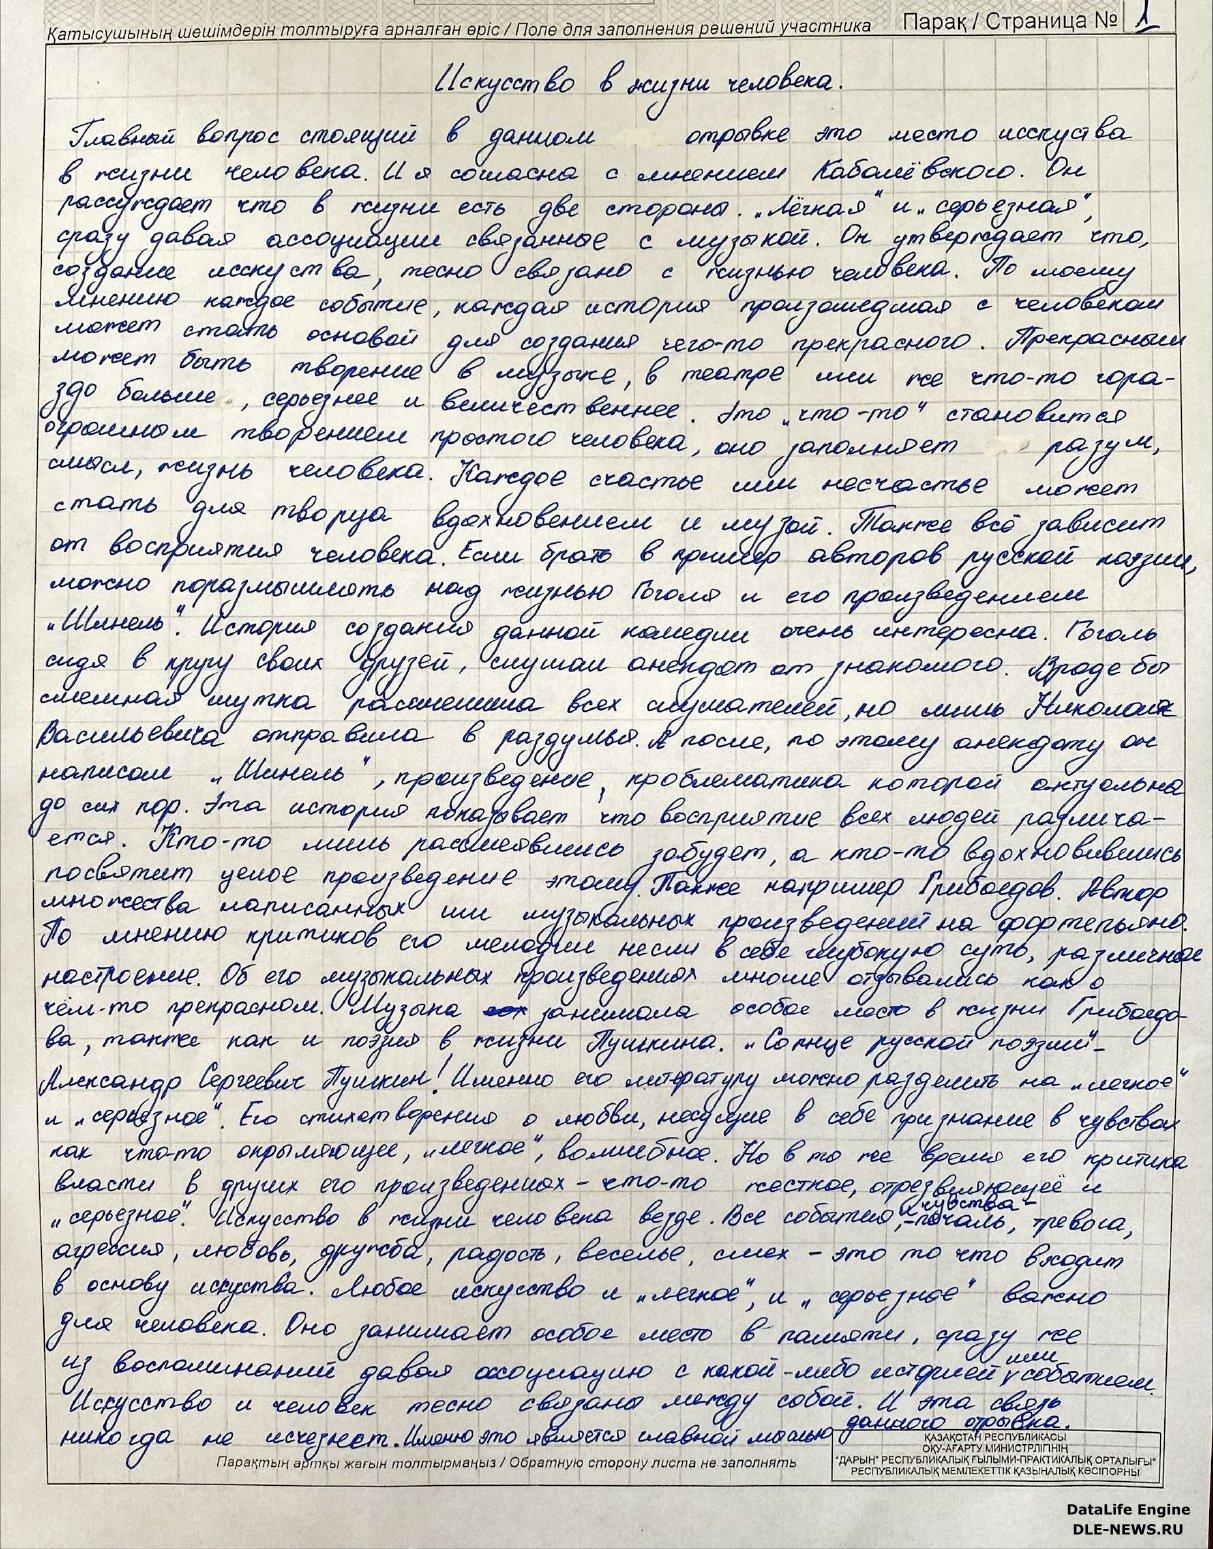 Қатысушының шешімдерін толтыруға арналған өріс / Поле для заполнения решений участника Парақ / Страница № 1
Искусство в жизни человека.
Главный вопрос стоящий в данном отрывке это место исскуства
в жизни человека. И я согласна с мнением Кабалёвского. Он
рассуждает что в жизни есть две стороны. „Лёгкая“ и „серьезная“,
сразу давая ассоциации связанные с музыкой. Он утверждает что,
создание исскуства, тесно связано с жизнью человека. По моему
мнению каждое событие, каждая история произошедшая с человеком
может стать основой для создания чего-то прекрасного. Прекрасным
может быть творение в музыке, в театре или же что-то гора-
здо больше, серьезнее и величественнее. Это „что-то“ становится
огромным творением простого человека, оно заполняет разум,
смысл, жизнь человека. Каждое счастье или несчастье может
стать для творца вдохновением и музой. Также всё зависит
от восприятия человека. Если брать в пример авторов русской поэзии,
можно поразмышлять над жизнью Гоголя и его произведением
„Шинель“. История создания данной комедии очень интересна. Гоголь
сидя в кругу своих друзей, слушал анекдот от знакомого. Вроде бы
смешная шутка рассмешила всех слушателей, но лишь Николая
Васильевича отправила в раздумья. А после, по этому анекдоту он
написал „Шинель“, произведение, проблематика которой актуальна
до сих пор. Эта история показывает что восприятие всех людей различа-
ется. Кто-то лишь рассмеявшись забудет, а кто-то вдохновившись
посвятит целое произведение этому. Также например Грибоедов. Автор
множества написанных им музыкальных произведений на фортепьяно.
По мнению критиков его мелодии несли в себе глубокую суть, различное
настроение. Об его музыкальных произведениях многие отзывались как о
чём-то прекрасном. Музыка занимала особое место в жизни Грибоедо-
ва, также как и поэзия в жизни Пушкина. „Солнце русской поэзии“-
Александр Сергеевич Пушкин! Именно его литературу можно разделить на „легкое“
и „серьезное“. Его стихотворения о любви, несущие в себе признание в чувствах
как что-то окрыляющее, „легкое“, волшебное. Но в то же время его критика
власти в других его произведениях - что-то жесткое, отрезвляющее и
„серьезное“. Искусство в жизни человека везде. Все события, и чувства - печаль, тревога,
агрессия, любовь, дружба, радость, веселье, смех - это то что входит
в основу искуства. Любое искусство и „легкое“, и „серьезное“ важно
для человека. Оно занимает особое место в памяти, сразу же
из воспоминаний давая ассоциацию с какой-либо историей или событием.
Искусство и человек тесно связаны между собой. И эта связь
никогда не исчезнет. Именно это является главной мыслью данного отрывка.
Парақтың артқы жағын толтырмаңыз / Обратную сторону листа не заполнять
ҚАЗАҚСТАН РЕСПУБЛИКАСЫ
ОҚУ-АҒАРТУ МИНИСТРЛІГІНІҢ
"ДАРЫН" РЕСПУБЛИКАЛЫҚ ҒЫЛЫМИ-ПРАКТИКАЛЫҚ ОРТАЛЫҒЫ"
РЕСПУБЛИКАЛЫҚ МЕМЛЕКЕТТІК ҚАЗЫНАЛЫҚ КӘСІПОРНЫ
DataLife Engine
DLE-NEWS.RU